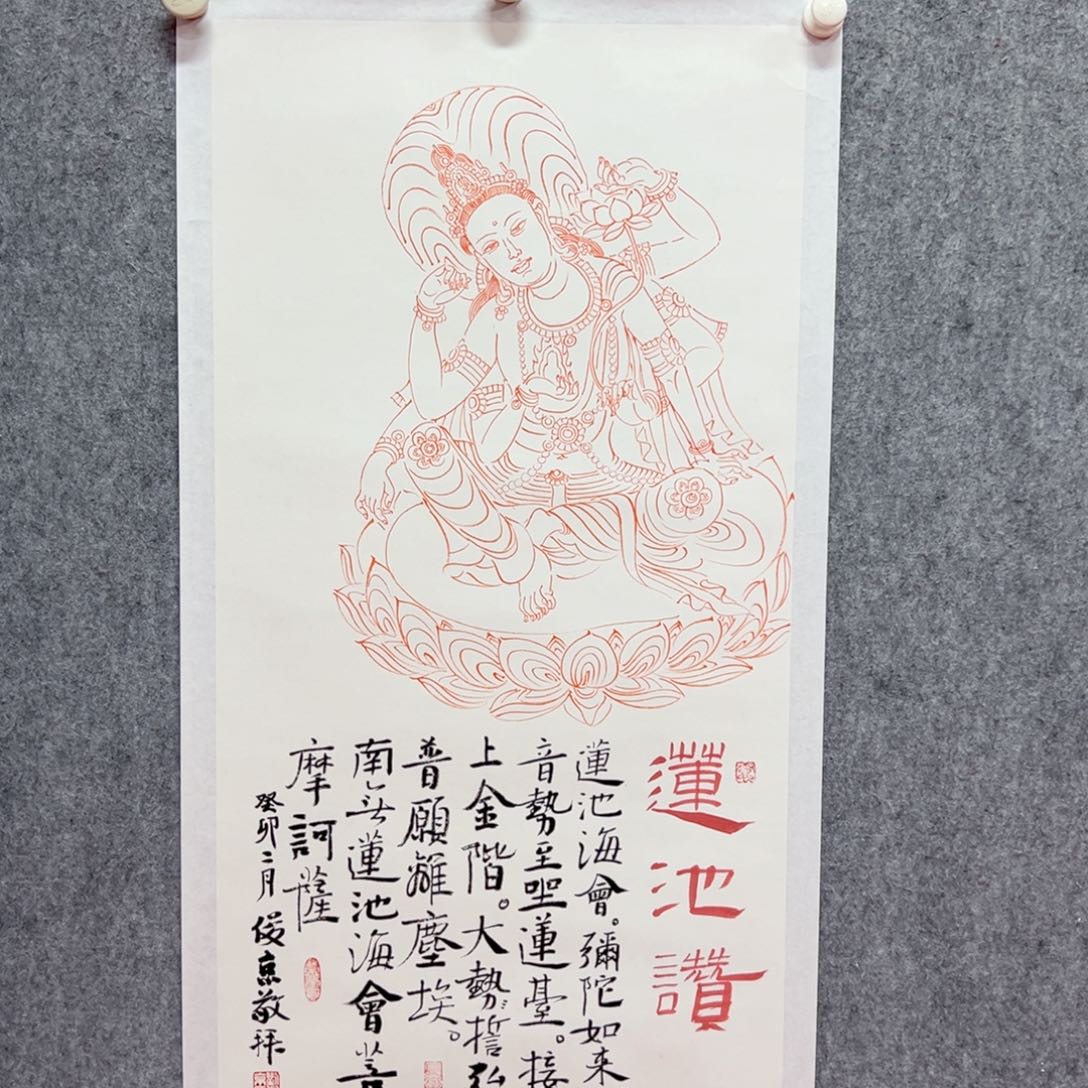 蓮池讚
蓮池海會。彌陀如来
音勢至坐蓮臺。接
上金階。大勢誓弘
普願離塵埃。
南无蓮池海會菩
摩訶薩
癸卯二月俊京敬拜